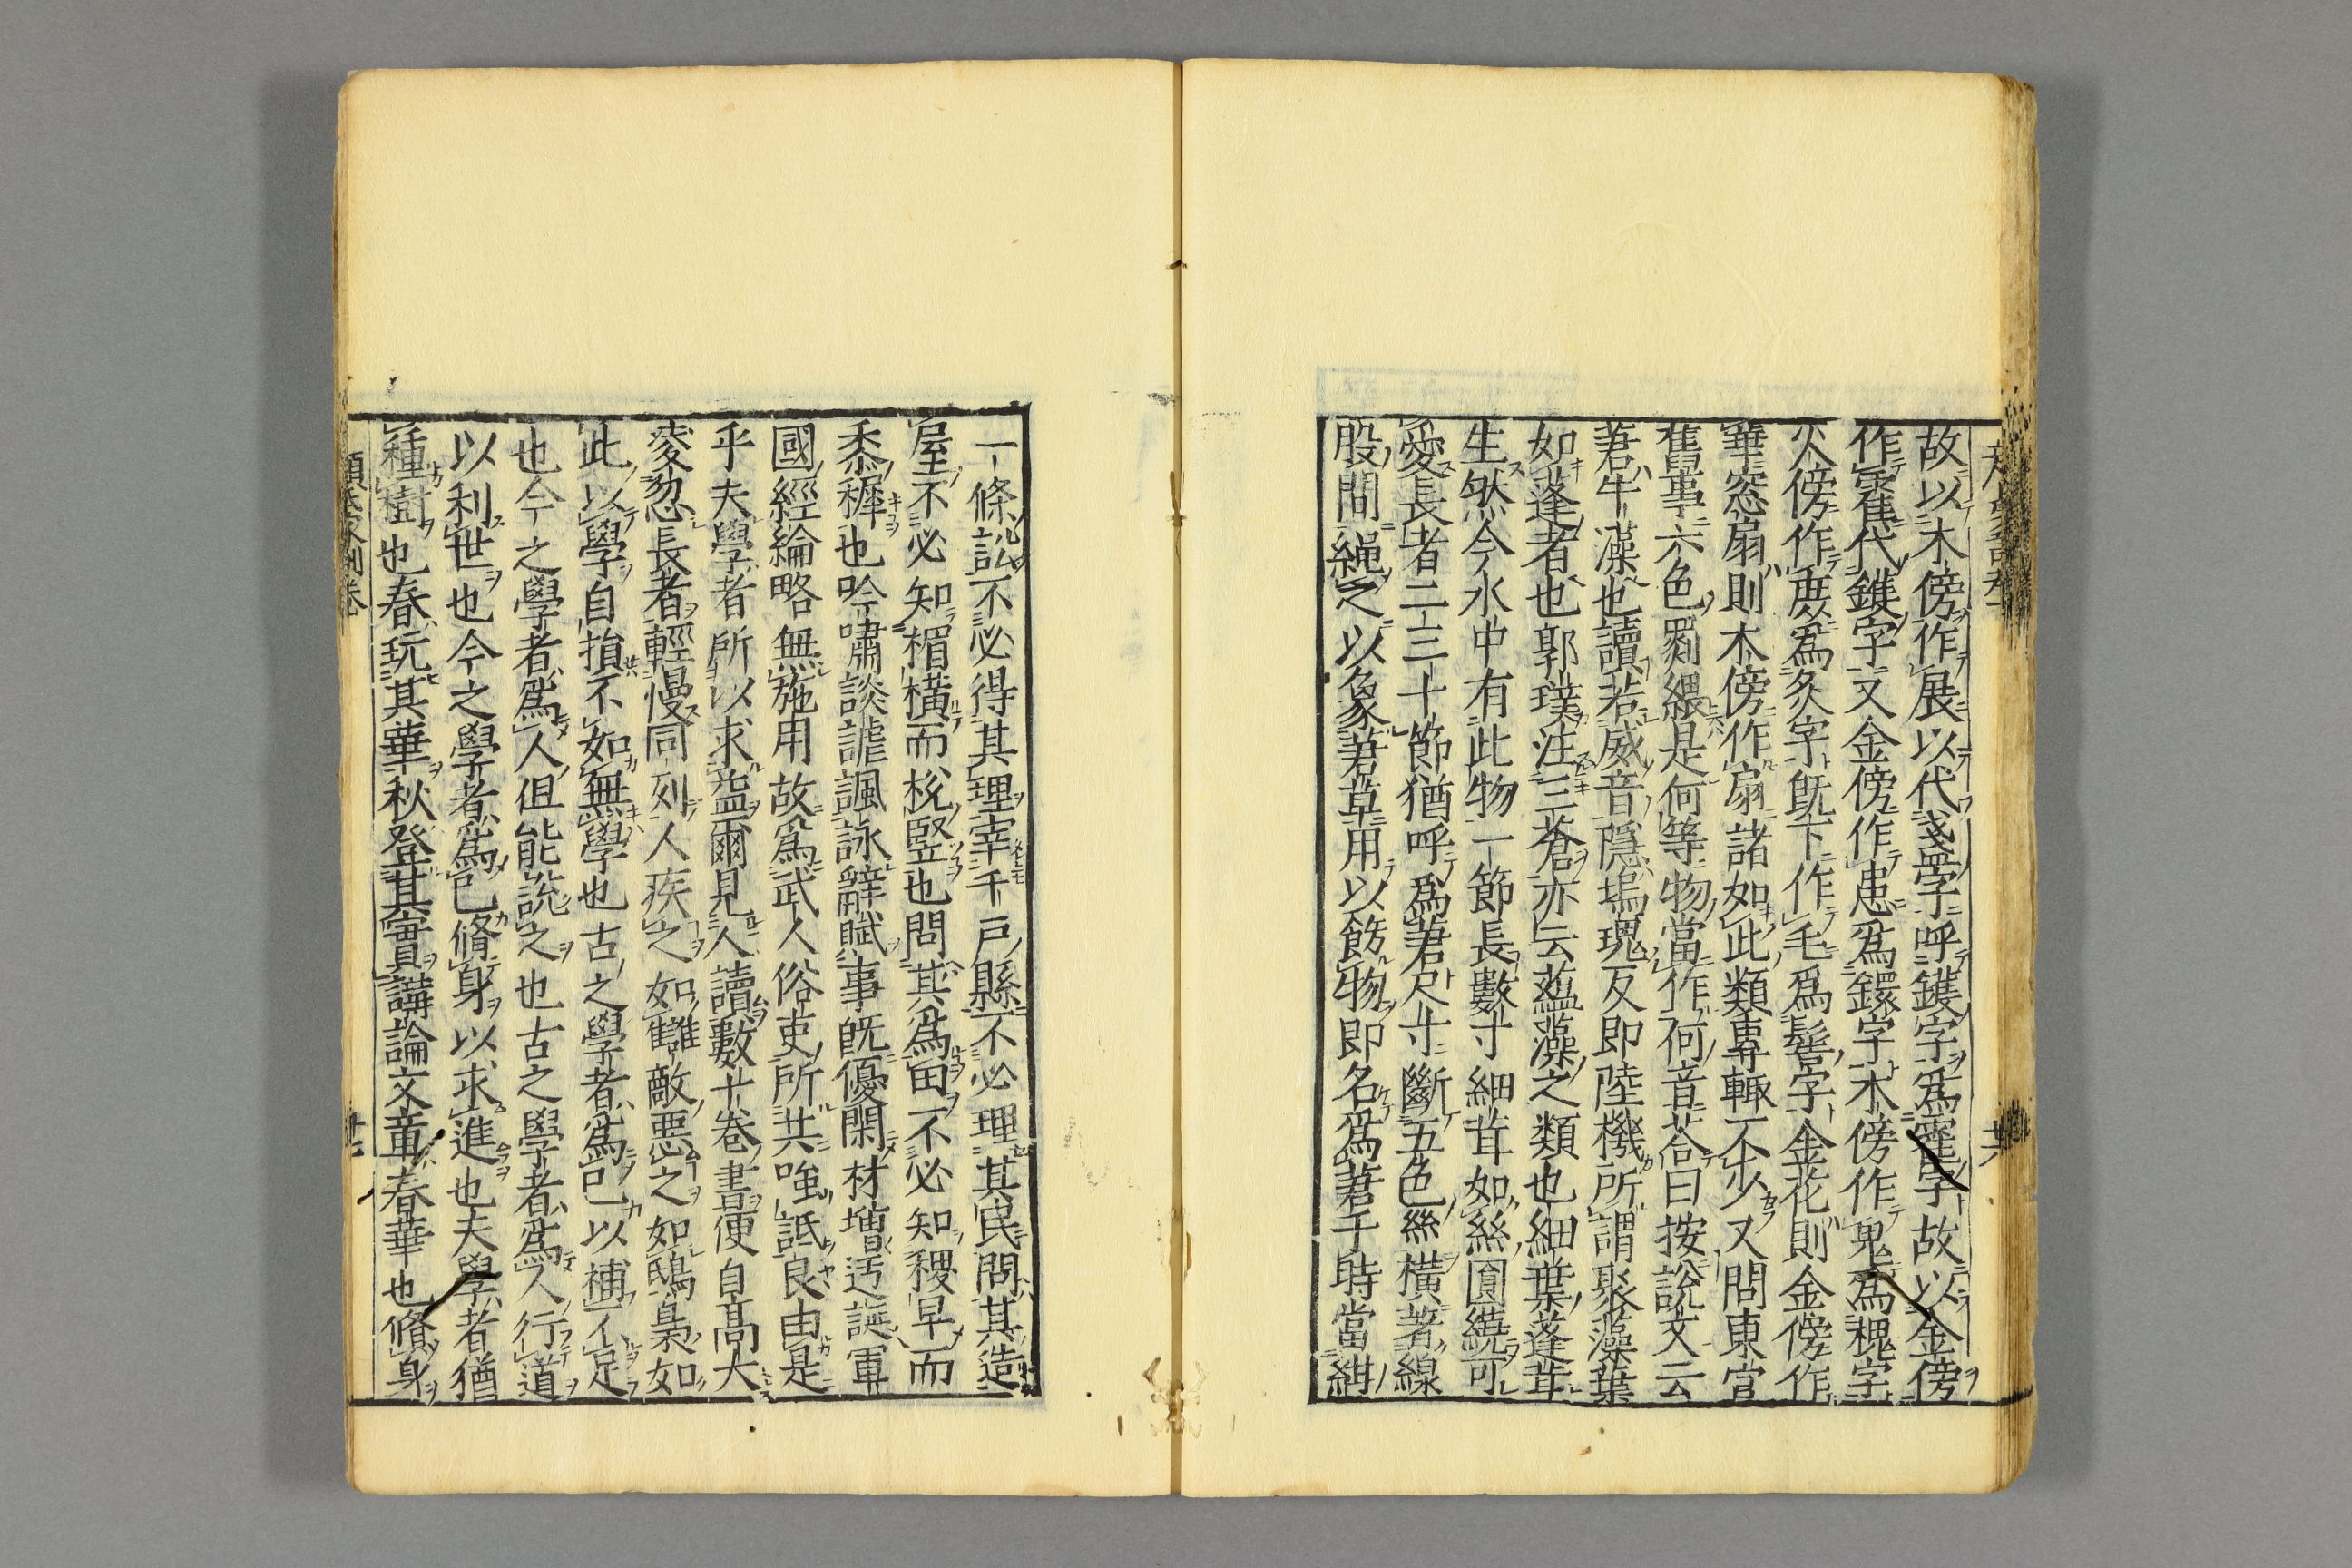 故以木傍作展以代盞字呼鑊字爲霍字故以金傍
作霍代鑊字又金傍作患爲鐶字木傍作鬼爲槐字
火傍作庶爲炙字既下作毛爲髻字金花則金傍作
華窓扇則木傍作扇諸如此類專輒不少又問東宮
舊事六色罽緦是何等物當作何音荅曰按說文云
莙牛藻也讀若威音隱塢瑰反即陸機所謂聚藻葉
如蓬者也郭璞注三蒼亦云蕰藻之類也細葉蓬茸
生然今水中有此物一節長數寸細茸如絲圓繞可
愛長者二三十節猶呼爲莙尺寸斷五色絲橫著線
股間繩之以象莙草用以飾物即名爲莙于時當紺
一條訟不必得其理宰千戸縣不必理其民問其造
屋不必知楣橫而梲竪也問其爲田不必知稷早而
黍穉也吟嘯談謔諷詠辭賦事既優閑材增迃誕軍
國經綸略無施用故爲武人俗吏所共嗤詆良由是
乎夫學者所以求益爾見人讀數十卷書便自高大
凌忽長者輕慢同列人疾之如讎敵悪之如鴟梟如
此以學自損不如無學也古之學者爲己以補不足
也今之學者爲人但能説之也古之學者爲人行道
以利世也今之學者爲己脩身以求進也夫學者猶
種樹也春玩其華秋登其實講論文章春華也脩身
顔氏家訓卷